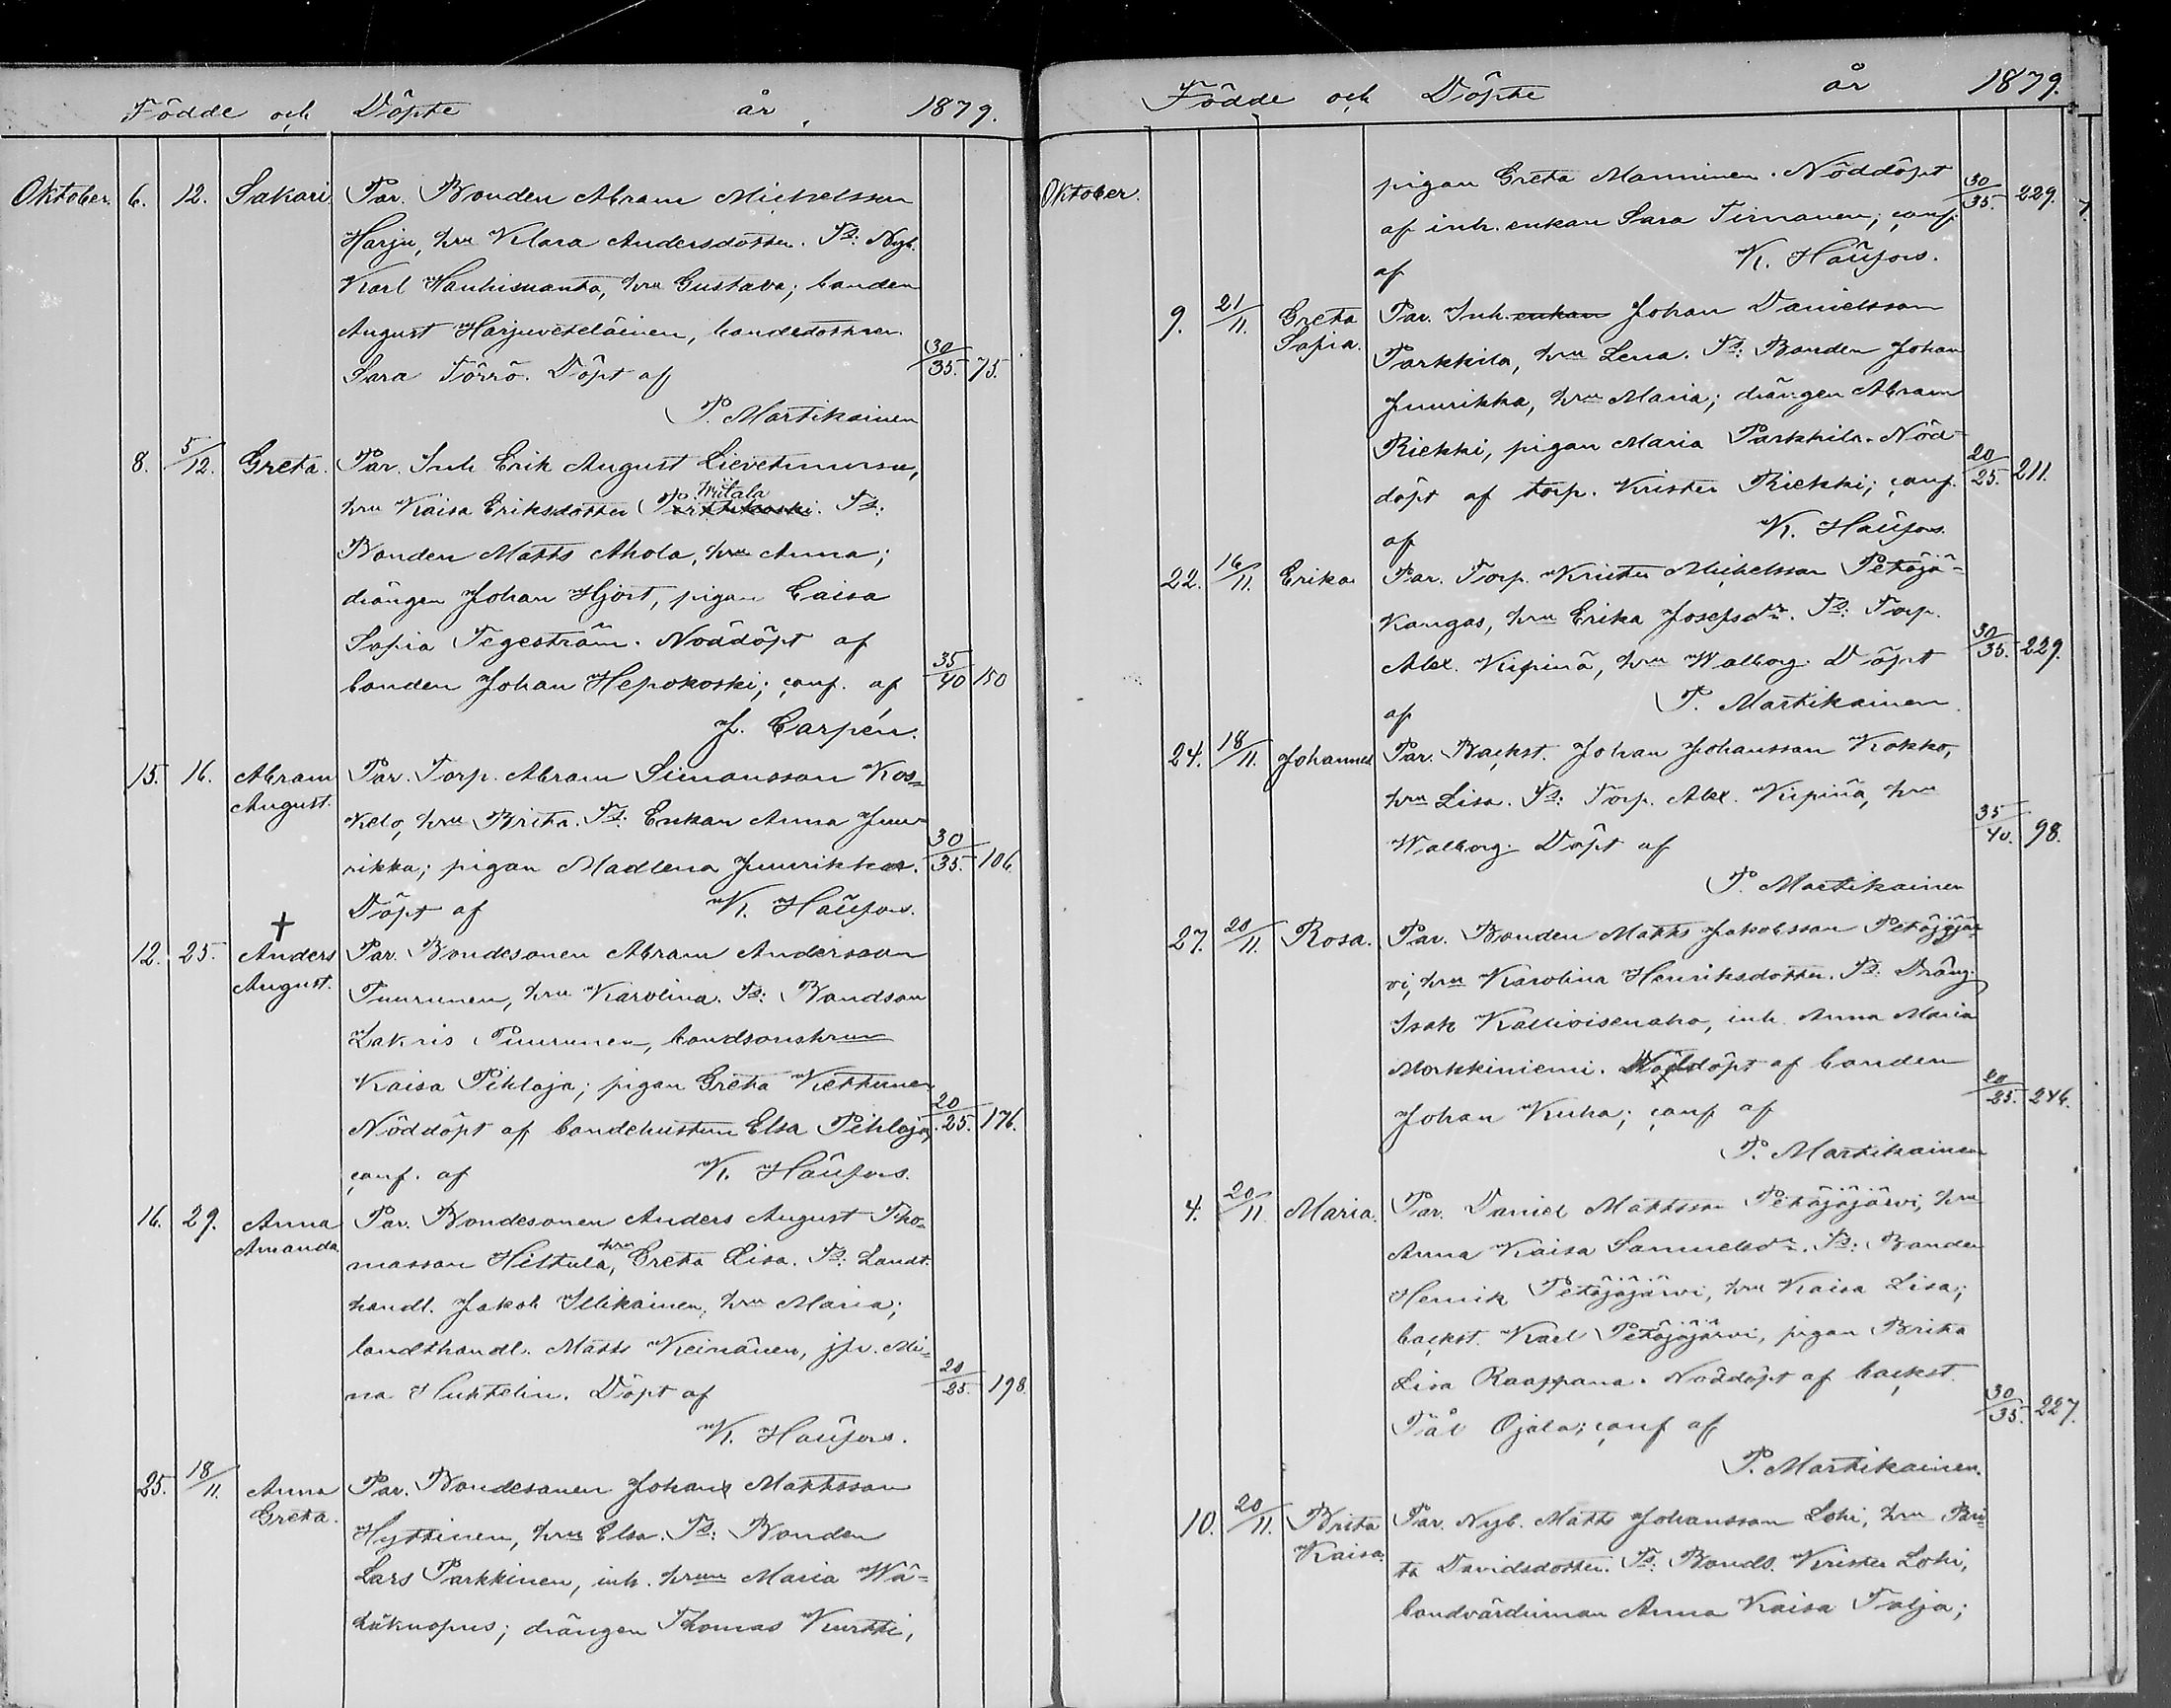 Födde och Döpte år 1879.
Oktober. 6. 12. Sakari. Par. Bonden Abram Michelsson
Harju, hru Klara Andersdotter. Ts: Nyb.
Karl Hauhisuanto, hru Gustava; bonden
August Harjuveteläinen, bondedottren
Sara Törrö. Döpt af 30/35. 75.
P. Martikainen
8. 5/12. Greta. Par. Inh Erik August Lievetmursu,
hru Kaisa Eriksdotter Ts:
Bonden Matts Ahola, hru Anna;
drängen Johan Hjort, pigan Caisa
Sofia Tegeström. Nöddöpt af
bonden Johan Hepokoski; conf. af 35/40 150
J. Carpén.
15. 16. Abram August. Par. Torp. Abram Simonsson Kos=
kelo, hru Brita. Ts: Enkan Anna Juu-
rikka; pigan Madlena Juurikka. 30/35. 106.
Döpt af K. Häüfors.
12. 25. † Anders August. Par. Bondesonen Abram Andersson
Tuurunen, hru Karolina. Ts: Bondson
Zakris Tuurunen, bondsonshrun
Kaisa Pihlaja; pigan Greta Kettunen
Nöddöpt af bondehustrun Elsa Pihlaja; 20/25. 176.
conf. af K. Häüfors.
16. 29. Anna Amanda Par. Bondesonen Anders August Tho=
masson Hiltula, hru Greta Lisa. Ts: Landt.
handl. Jakob Illikainen, hru Maria;
landthandl. Matts Keinänen, jfr. Mi=
na Huktelin. Döpt af 20/25. 198.
K. Häüfors.
25. 18/11. Anna Greta. Par. Bondesonen Johan Mattsson
Hyttinen, hru Elsa. Ts: Bonden
Lars Parkkinen, inh. hrun Maria Wä=
häkuopus; drängen Thomas Kurtti,
Födde och Döpte år 1879.
Oktober. pigan Greta Manninen. Nöddöpt 30/35. 229.
af inh. enkan Sara Tirnanen; conf.
af K. Häüfors.
9. 21/11. Greta Sofia. Par. Inh. enkan Johan Danielsson
Parkkila, hru Lena. Ts: Bonden Johan
Juurikka, hru Maria; drängen Abram
Riekki, pigan Maria Parkkila. Nöd-
döpt af torp. Krister Riekki; conf. 20/25. 211.
af K. Häüfors.
22. 16/11. Erika Par. Torp. Krister Michelsson Petäjä-
kangas, hru Erika Josefsdr. Ts: Torp.
Alex. Kipinä, hru Walborg. Döpt 30/35. 229.
af P. Martikainen.
24. 18/11. Johannes Par. Backst. Johan Johansson Kokko,
hru Lisa. Ts: Torp. Alex. Kipinä, hru
Walborg. Döpt af 35/40. 98.
P. Martikainen
27. 20/11. Rosa. Par. Bonden Matts Jakobsson Petäjäjär-
vi, hru Karolina Henriksdotter. Ts: Dräng.
Isak Kallioisenaho, inh. Anna Maria
Morkkiniemi. Nöddöpt af bonden
Johan Kuha; conf af 20/25. 246.
P. Martikainen
4. 20/11. Maria. Par. Daniel Mattsson Petäjäjärvi, hru
Anna Kaisa Samuelsdr. Ts: Bonden
Henrik Petäjäjärvi, hru Kaisa Lisa;
backst. Karl Petäjäjärvi, pigan Brita
Lisa Raappana. Nöddöpt af backst.
Pål Ojala; conf af 30/35. 227.
P. Martikainen.
10. 20/11. Brita Kaisa. Par. Nyb. Matts Johansson Lohi, hru Bri
ta Davidsdotter. Ts: Bonds. Krister Lohi,
bondvärdinnan Anna Kaisa Talja;